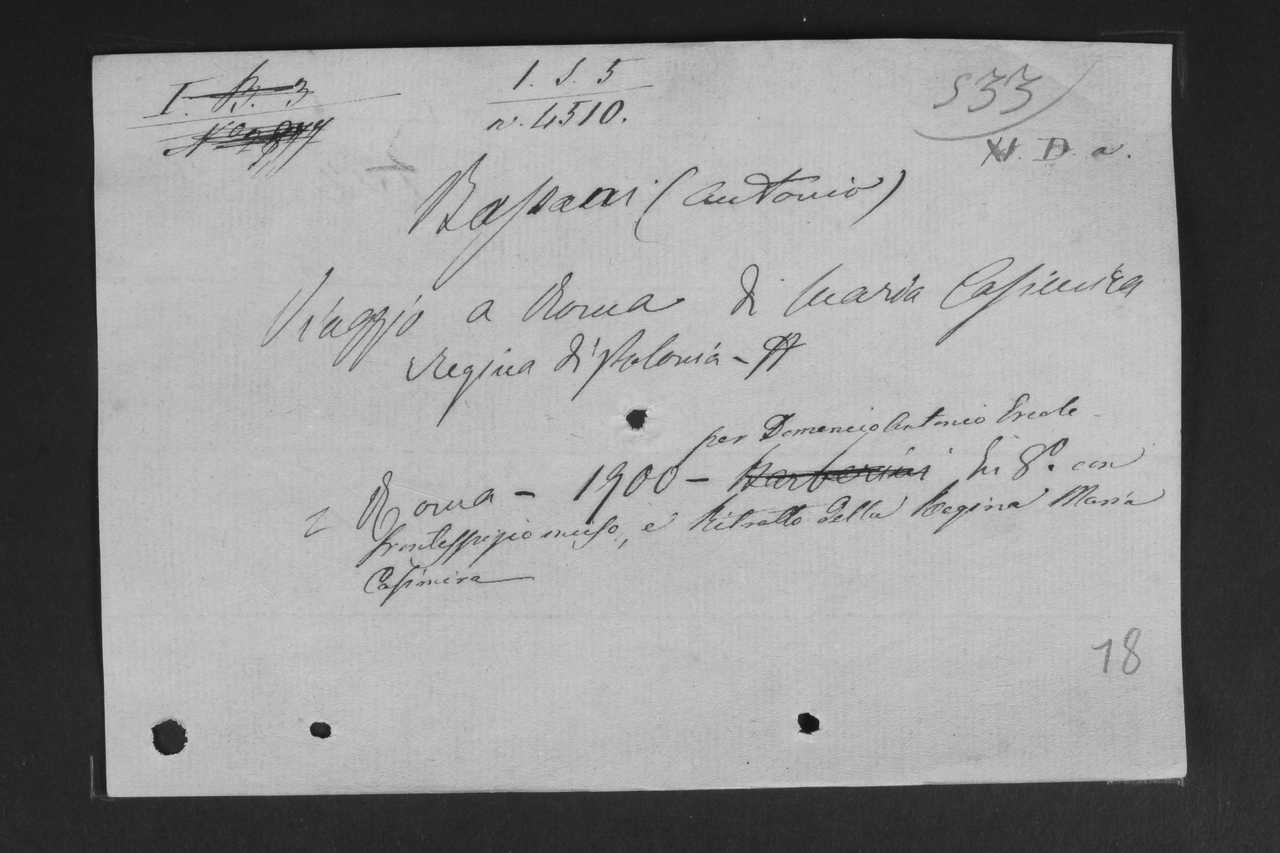 I. B. 3
I. S. 5
n. 4510.
533
XI. D. a.
Bassani (Antonio)
Viaggio a Roma di Maria Casimira
Regina di Polonia -
per Domenico Antonio Ercole
Roma - 1900 - Barberini In 8.º con
frontespizio inciso, e Ritratto della Regina Maria
Casimira
18